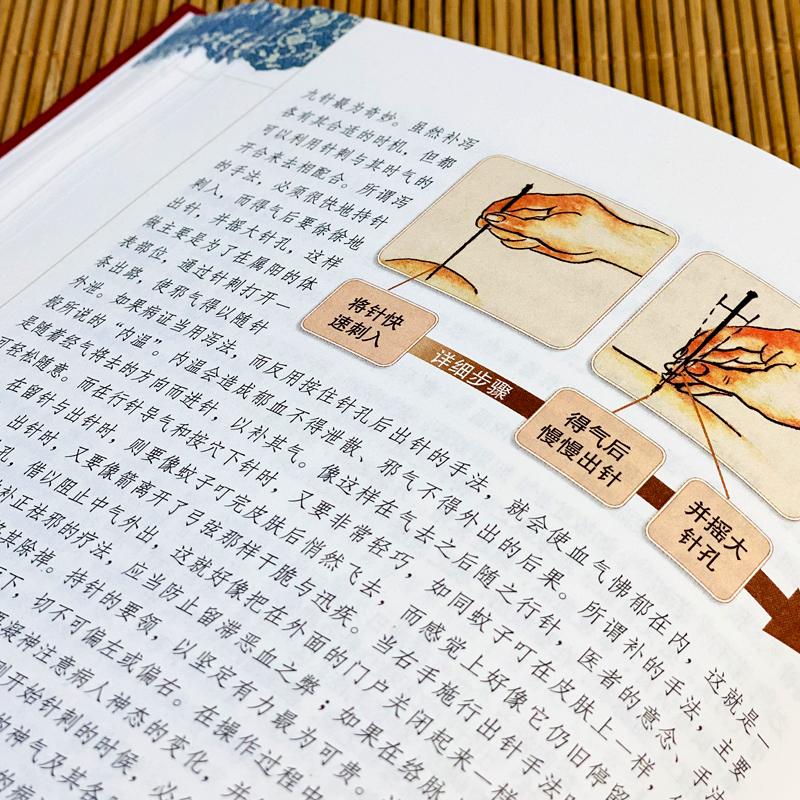 九针最为奇妙。虽然补泻
各有其合适的时机，但都
可以利用针刺与其时气的
开合来去相配合。所谓泻
的手法，必须很快地持针
刺入，而得气后要徐徐地
出针，并摇大针孔，这样
做主要是为了在属阳的体
表部位，通过针刺打开一
条出路，使邪气得以随针
外泄。如果病证当用泻法，而反用按住针孔后出针的手法，就会使血气怫郁在内，这就是一
般所说的“内温”。内温会造成郁血不得泄散、邪气不得外出的后果。所谓补的手法，主要
是随着经气将去的方向而进针，以补其气。像这样在气去之后随之行针，医者的意念、手法
可轻松随意。而在行针导气和按穴下针时，又要非常轻巧，如同蚊子叮在皮肤上一样，
在留针与出针时，则要像蚊子叮完皮肤后悄然飞去，而感觉上好像它仍旧停留
出针时，又要像箭离开了弓弦那样干脆与迅疾。当右手施行出针手法
孔，借以阻止中气外出，这就好像把在外面的门户关闭起来一样
补正祛邪的疗法，应当防止留滞恶血之弊；如果在络脉
将其除掉。持针的要领，以坚定有力最为可贵。
下，切不可偏左或偏右。在操作过程中
凝神注意病人神态的变化，并
开始针刺的时候，必
的神气及其各
将针快
速刺入
详细步骤
得气后
慢慢出针
并摇大
针孔